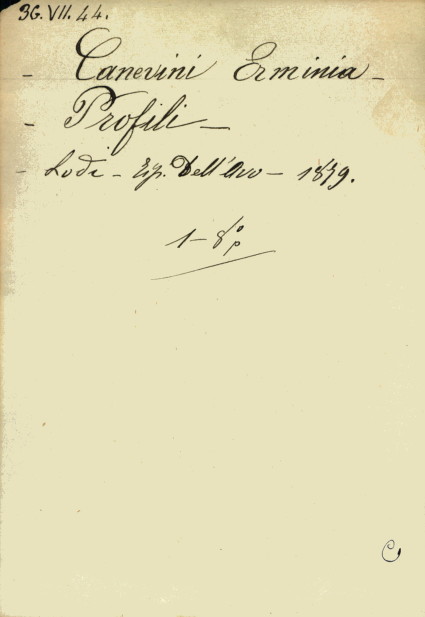 3G. VII. 44.
- Canevini Erminia -
- Profili -
- Lodi - Tip. Dell'Avo - 1879.
1 - 8º p
C